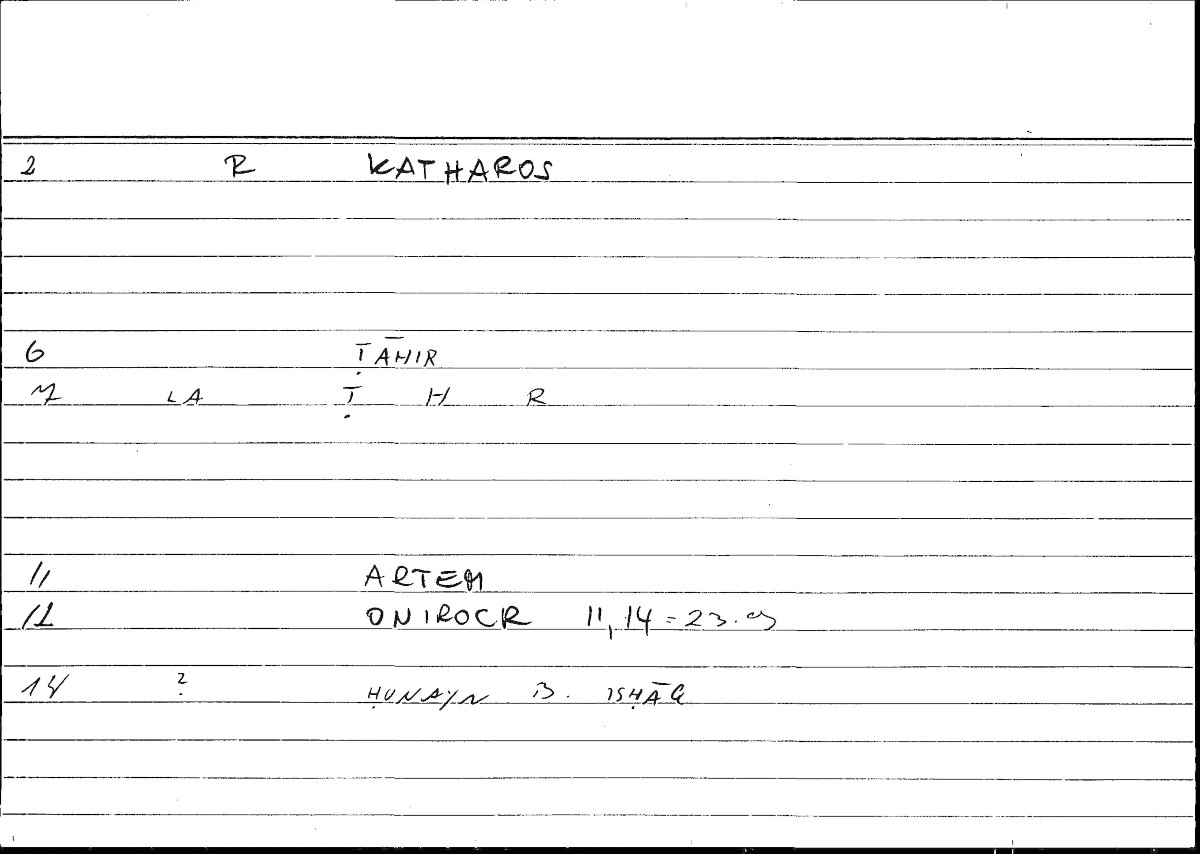 2 R KATHAROS
6 ṬĀHIR
7 LA Ṭ H R
11 ARTEM
12 ONIROCR 11,14 = 23.9
14 ? ḤUNAYN B. ISḤĀQ